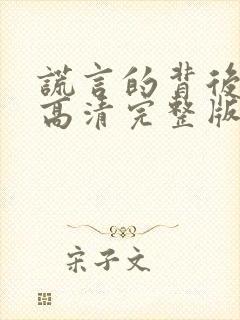 謊言的背後
高清完整版
宋子文